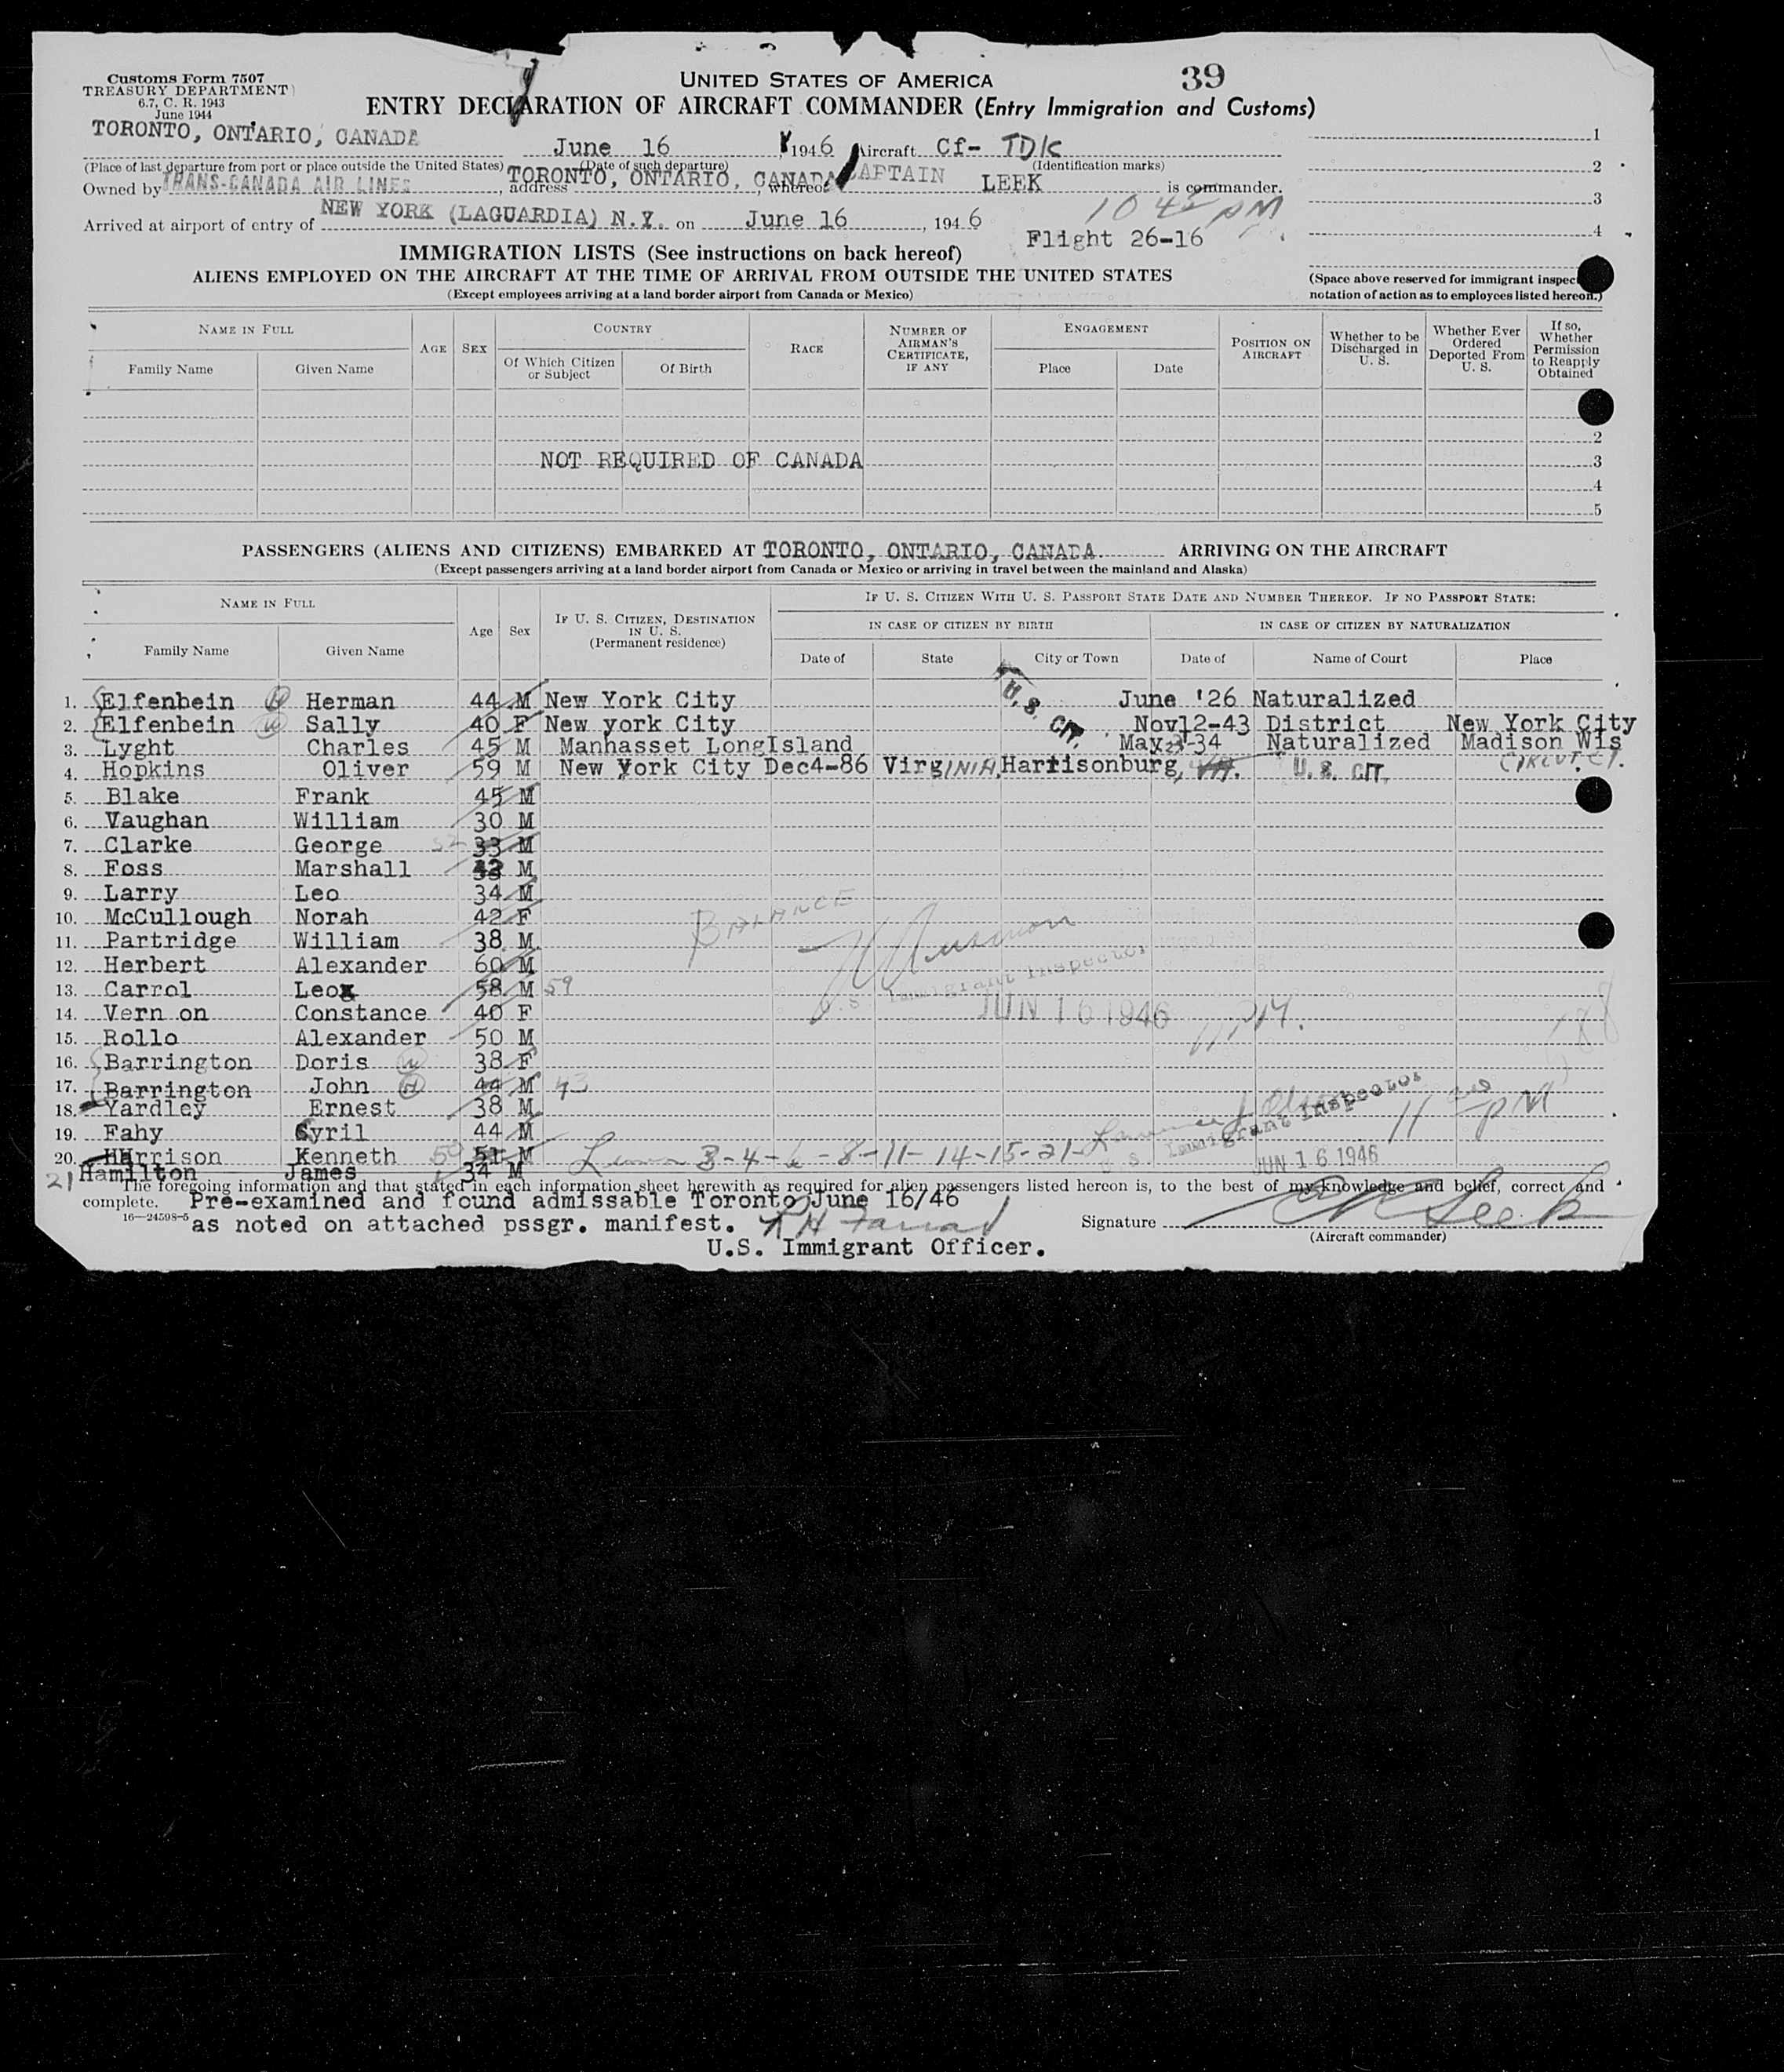 Customs Form 7507
TREASURY DEPARTMENT
6.7, C. R. 1943
June 1944
UNITED STATES OF AMERICA
39
ENTRY DECLARATION OF AIRCRAFT COMMANDER (Entry Immigration and Customs)
TORONTO, ONTARIO, CANADA June 16, 1946 Aircraft Cf- TDK
(Place of last departure from port or place outside the United States) (Date of such departure) (Identification marks)
Owned by TRANS-CANADA AIR LINES, address TORONTO, ONTARIO, CANADA, whereof CAPTAIN LEEK is commander.
Arrived at airport of entry of NEW YORK (LAGUARDIA) N.Y. on June 16, 1946
10 45 PM
Flight 26-16
1
2
3
4
(Space above reserved for immigrant inspec
notation of action as to employees listed hereon.)
IMMIGRATION LISTS (See instructions on back hereof)
ALIENS EMPLOYED ON THE AIRCRAFT AT THE TIME OF ARRIVAL FROM OUTSIDE THE UNITED STATES
(Except employees arriving at a land border airport from Canada or Mexico)
NAME IN FULL
Family Name Given Name
AGE SEX
COUNTRY
Of Which Citizen or Subject Of Birth
RACE
NUMBER OF AIRMAN'S CERTIFICATE, IF ANY
ENGAGEMENT
Place Date
POSITION ON AIRCRAFT
Whether to be Discharged in U. S.
Whether Ever Ordered Deported From U. S.
If so, Whether Permission to Reapply Obtained
2
NOT REQUIRED OF CANADA 3
4
5
PASSENGERS (ALIENS AND CITIZENS) EMBARKED AT TORONTO, ONTARIO, CANADA ARRIVING ON THE AIRCRAFT
(Except passengers arriving at a land border airport from Canada or Mexico or arriving in travel between the mainland and Alaska)
NAME IN FULL
Family Name Given Name
Age Sex
IF U. S. CITIZEN, DESTINATION IN U. S. (Permanent residence)
IF U. S. CITIZEN WITH U. S. PASSPORT STATE DATE AND NUMBER THEREOF. IF NO PASSPORT STATE:
IN CASE OF CITIZEN BY BIRTH IN CASE OF CITIZEN BY NATURALIZATION
Date of State City or Town Date of Name of Court Place
U. S. CIT.
1. Elfenbein H Herman 44 M New York City June '26 Naturalized
2. Elfenbein W Sally 40 F New york City Nov12-43 District New York City
3. Lyght Charles 45 M Manhasset LongIsland May -34 Naturalized Madison Wis
4. Hopkins Oliver 59 M New York City Dec4-86 VirgINIA, Harrisonburg, VA. U. S. CIT. CIRCUT CT.
5. Blake Frank 45 M
6. Vaughan William 30 M
7. Clarke George 32 33 M
8. Foss Marshall M
9. Larry Leo 34 M
10. McCullough Norah 42 F
11. Partridge William 38 M
12. Herbert Alexander 60 M
13. Carrol Leox 58 M 59
14. Vern on Constance 40 F
15. Rollo Alexander 50 M
16. Barrington Doris W 38 F
17. Barrington John H 44 M 43
18. Yardley Ernest 38 M
19. Fahy Cyril 44 M
20. Harrison Kenneth 50 51 M
21 Hamilton James 34 M
BALANCE
U.S. Immigrant Inspector
JUN 16 1946
11 PM.
U. S. Immigrant Inspector
11 00 PM
3-4-6-8-11-14-15-21-
JUN 16 1946
The foregoing information and that stated in each information sheet herewith as required for alien passengers listed hereon is, to the best of my knowledge and belief, correct and
complete. Pre-examined and found admissable Toronto June 16/46
16—24598-5 as noted on attached pssgr. manifest.
U.S. Immigrant Officer.
Signature Leek
(Aircraft commander)